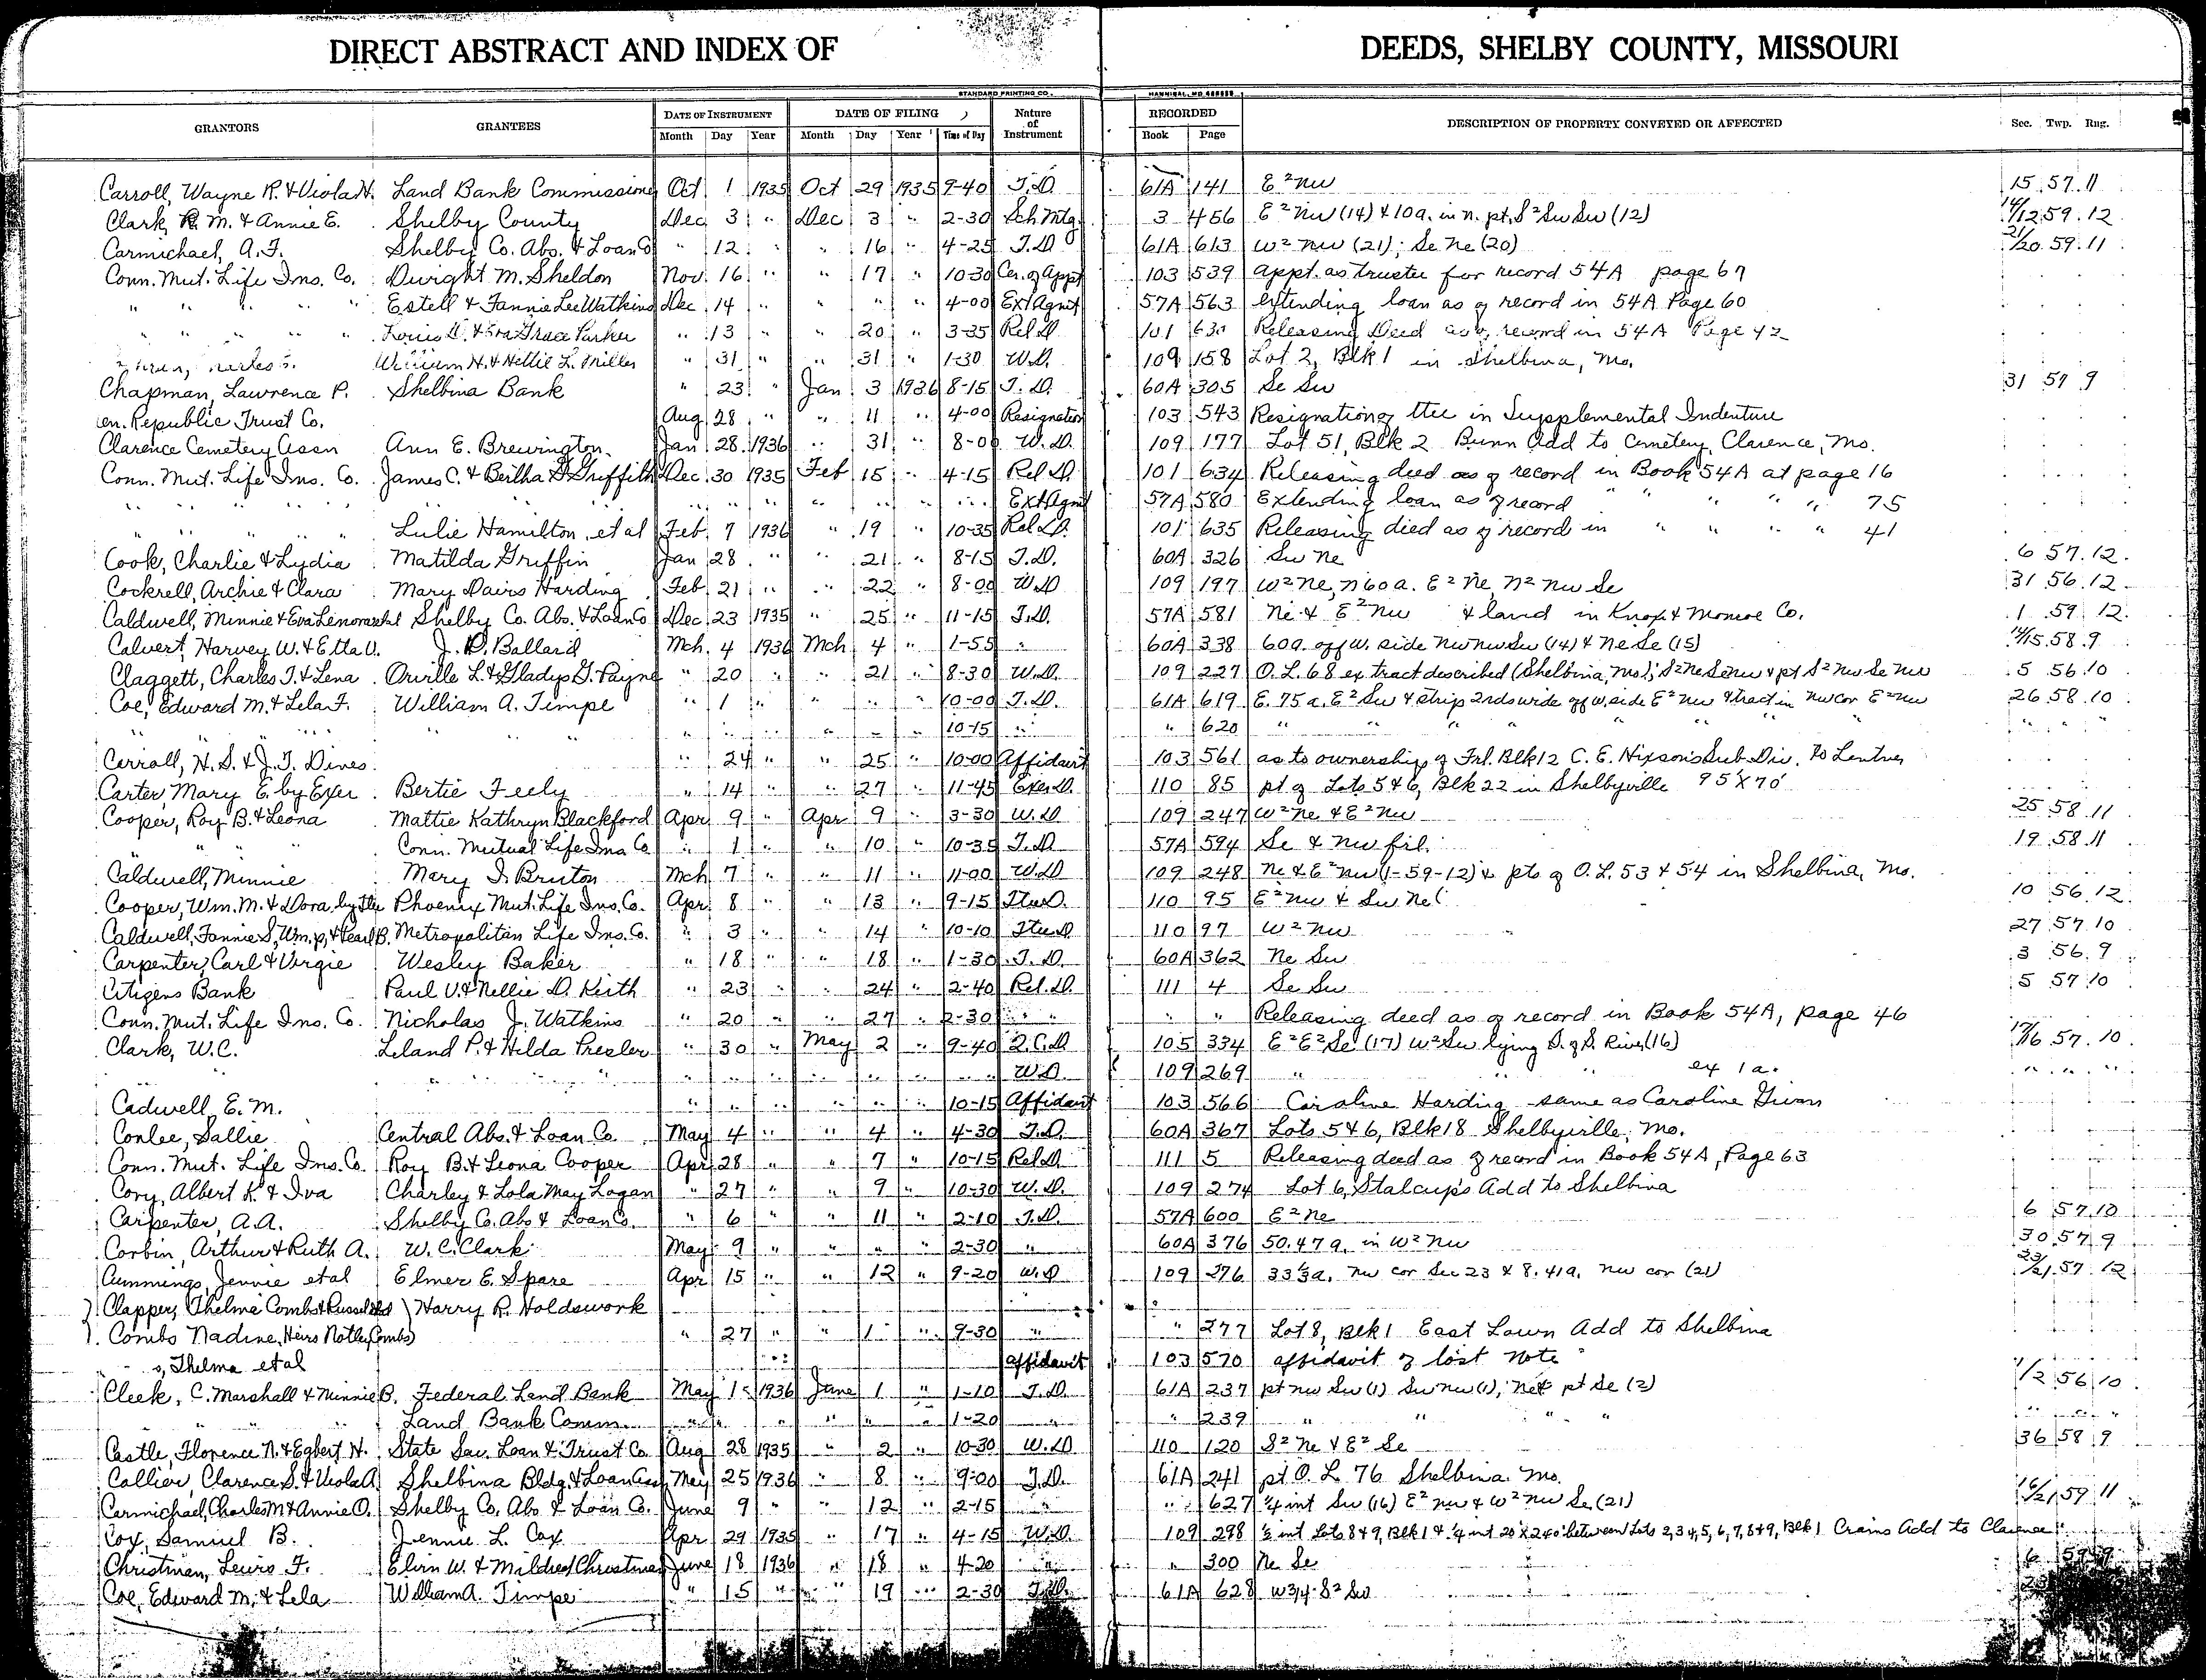 DIRECT ABSTRACT AND INDEX OF DEEDS, SHELBY COUNTY, MISSOURI
STANDARD PRINTING CO. HANNIBAL, MO
GRANTORS GRANTEES DATE OF INSTRUMENT DATE OF FILING Nature of Instrument RECORDED DESCRIPTION OF PROPERTY CONVEYED OR AFFECTED Sec. Twp. Rng.
Month Day Year Month Day Year Time of Day Book Page
Carroll, Wayne R. & Viola H. Land Bank Commissioner Oct 1 1935 Oct 29 1935 9-40 T.D. 61A 141 E² nw 15 57 11
Clark, R. M. & Annie E. Shelby County Dec 3 " Dec 3 " 2-30 Sch Mtg. 3 456 E² nw (14) & 10a. in n. pt. S² Sw Sw (12) 14/12 59 12
Carmichael, A.F. Shelby Co. Abs. & Loan Co " 12 " " 16 " 4-25 T.D. 61A 613 W² nw (21); Se Ne (20) 21/20 59 11
Conn. Mut. Life Ins. Co. Dwight M. Sheldon Nov. 16 " " 17 " 10-30 Cer. of Appt 103 539 appt. as trustee for record 54A page 67
" " " " Estell & Fannie Lee Watkins Dec 14 " " " " 4-00 Ext Agmt 57A 563 extending loan as of record in 54A Page 60
" " " " Louis D. & Eva Grace Parker " 13 " 20 " 3-35 Rel D. 101 630 Releasing Deed as of record in 54A Page 42
William H. & Nettie L. Miller " 31 " " 31 " 1-30 W.D. 109 158 Lot 2, Blk 1 in Shelbina, Mo.
Chapman, Lawrence P. Shelbina Bank " 23 " Jan 3 1936 8-15 T.D. 60A 305 Se Sw 31 57 9
en. Republic Trust Co. Aug 28 " " 11 " 4-00 Resignation 103 543 Resignation of ttee in Supplemental Indenture
Clarence Cemetery Assn Ann E. Brewington Jan 28 1936 " 31 " 8-00 W.D. 109 177 Lot 51, Blk 2 Bunn Add to Cemetery, Clarence, Mo.
Conn. Mut. Life Ins. Co. James C. & Bertha D Griffith Dec 30 1935 Feb 15 " 4-15 Rel D. 101 634 Releasing deed as of record in Book 54A at page 16
" " " " " " " " " " Ext Agmt 57A 580 Extending loan as of record " " " " 75
" " " " Lulie Hamilton et al Feb. 7 1936 " 19 " 10-35 Rel D. 101 635 Releasing died as of record in " " " " 41
Cook, Charlie & Lydia Matilda Griffin Jan 28 " " 21 " 8-15 T.D. 60A 326 Sw ne 6 57 12
Cockrell, Archie & Clara Mary Davis Harding Feb 21 " " 22 " 8-00 WD 109 197 W² Ne, n 60 a. E² Ne, N² Nw Se 31 56 12
Caldwell, Minnie & Eva Lenora et al Shelby Co. Abs. & Loan Co Dec 23 1935 " 25 " 11-15 T.D. 57A 581 Ne & E² Nw & land in Knox & Monroe Co. 1 59 12
Calvert, Harvey W. & Etta V. J. D. Ballard Mch. 4 1936 Mch 4 " 1-55 " 60A 338 60a. off W. side Nw Nw Sw (14) & Ne Se (15) 14/15 58 9
Claggett, Charles T. & Lena Orville L. & Gladys G. Payne " 20 " " 21 " 8-30 W.D. 109 227 O.L. 68 ex tract described (Shelbina, Mo.); S² Ne Se nw & pt S² Nw Se Nw 5 56 10
Coe, Edward M. & Lela F. William A. Timpe " 1 " " " " 10-00 T.D. 61A 619 E. 75 a. E² Sw & strip 2 rds wide off w. side E² nw & tract in nw cor E² nw 26 58 10
" " " " " " " " " " 10-15 " " 620 " " " " " " " "
Carroll, H. S. & J. T. Dines " 24 " " 25 " 10-00 Affidavit 103 561 as to ownership of Frl. Blk 12 C. E. Hixson's Sub Div. to Lentner
Carter, Mary E. by Exer Bertie Feely " 14 " " 27 " 11-45 Exer D. 110 85 pt of Lots 5 & 6, Blk 22 in Shelbyville 95 X 70'
Cooper, Roy B. & Leona Mattie Kathryn Blackford Apr 9 " Apr 9 " 3-30 W.D 109 247 W² Ne & E² Nw 25 58 11
" " Conn. Mutual Life Ins Co " 1 " " 10 " 10-35 T.D. 57A 594 Se & Nw frl. 19 58 11
Caldwell, Minnie Mary I. Bruton Mch 7 " " 11 " 11-00 W.D 109 248 Ne & E² nw (1-59-12) & pts of O.L. 53 & 54 in Shelbina, Mo.
Cooper, Wm. M. & Dora by ttee Phoenix Mut. Life Ins. Co. Apr 8 " " 13 " 9-15 Ttee D. 110 95 E² nw & Sw Ne 10 56 12
Caldwell, Fannie S, Wm. P, & Pearl B. Metropolitan Life Ins. Co. " 3 " " 14 " 10-10 Ttee D 110 97 W² nw 27 57 10
Carpenter, Carl & Vergie Wesley Baker " 18 " " 18 " 1-30 T.D. 60A 362 Ne Sw 3 56 9
Citizens Bank Paul V. & Nellie D. Keith " 23 " " 24 " 2-40 Rel. D. 111 4 Se Sw 5 57 10
Conn. Mut. Life Ins. Co. Nicholas J. Watkins " 20 " " 27 " 2-30 " " " " Releasing deed as of record in Book 54A, page 46
Clark, W.C. Leland P. & Hilda Presler " 30 " May 2 " 9-40 Q.C.D 105 334 E² E² Se (17) W² Sw lying S. of S. River (16) 17/16 57 10
" " " " " " " " W.D. 109 269 " " " ex 1 a. " " "
Cadwell, E. M. " " " " " " 10-15 Affidavit 103 566 Caroline Harding same as Caroline Givan
Conlee, Sallie Central Abs. & Loan Co. May 4 " " 4 " 4-30 T.D. 60A 367 Lots 5 & 6, Blk 18 Shelbyville, Mo.
Conn. Mut. Life Ins. Co. Roy B. & Leona Cooper Apr 28 " " 7 " 10-15 Rel D 111 5 Releasing deed as of record in Book 54A, Page 63
Cory, Albert K. & Iva Charley & Lola May Logan " 27 " " 9 " 10-30 W.D. 109 274 Lot 6, Stalcup's Add to Shelbina
Carpenter, A.A. Shelby Co. Abs & Loan Co. " 6 " " 11 " 2-10 T.D. 57A 600 E² ne 6 57 10
Corbin, Arthur & Ruth A. W. C. Clark May 9 " " " " 2-30 " 60A 376 50.47a. in W² Nw 30 57 9
Cummings, Jennie et al Elmer E. Spare Apr 15 " " 12 " 9-20 W.D 109 276 33⅓a. nw cor Sec 23 & 8.41a. nw cor (21) 23/21 57 12
Clapper, Thelma Combs & Russel Harry R. Holdswork
Combs Nadine, Heirs Notley Combs " 27 " " 1 " 9-30 " " 277 Lot 8, Blk 1 East Lawn Add to Shelbina
s, Thelma et al affidavit 103 570 affidavit of lost note
Cleek, C. Marshall & Minnie B. Federal Land Bank May 1 1936 June 1 " 1-10 T.D. 61A 237 pt nw Sw (1) Sw nw (1), Ne & pt Se (2) 1/2 56 10
" " " Land Bank Comm. " " " " " " 1-20 " " 239 " " " " " " "
Castle, Florence N. & Egbert H. State Sav. Loan & Trust Co. Aug 28 1935 " 2 " 10-30 W.D 110 120 S² Ne & E² Se 36 58 9
Collier, Clarence S. & Viola A Shelbina Bldg. & Loan Assn May 25 1936 " 8 " 9-00 T.D. 61A 241 pt O. L. 76 Shelbina Mo.
Carmichael, Charles M & Annie O. Shelby Co. Abs & Loan Co. June 9 " " 12 " 2-15 " " 627 ¼ int Sw (16) E² nw & W² nw Se (21) 16/21 59 11
Cox, Samuel B. Jennie L. Cox Apr 29 1935 " 17 " 4-15 W.D. 109 298 ½ int Lots 8 & 9, Blk 1 & ¼ int 20' X 240' between Lots 2, 3, 4, 5, 6, 7, 8 & 9, Blk 1 Crains Add to Clarence
Christman, Lewis F. Elvin W. & Mildred Christman June 18 1936 " 18 " 4-20 " " 300 Ne Se 6
Coe, Edward M. & Lela William A. Timpe " 15 " " 19 " 2-30 T.D. 61A 628 W 3/4 S² Sw